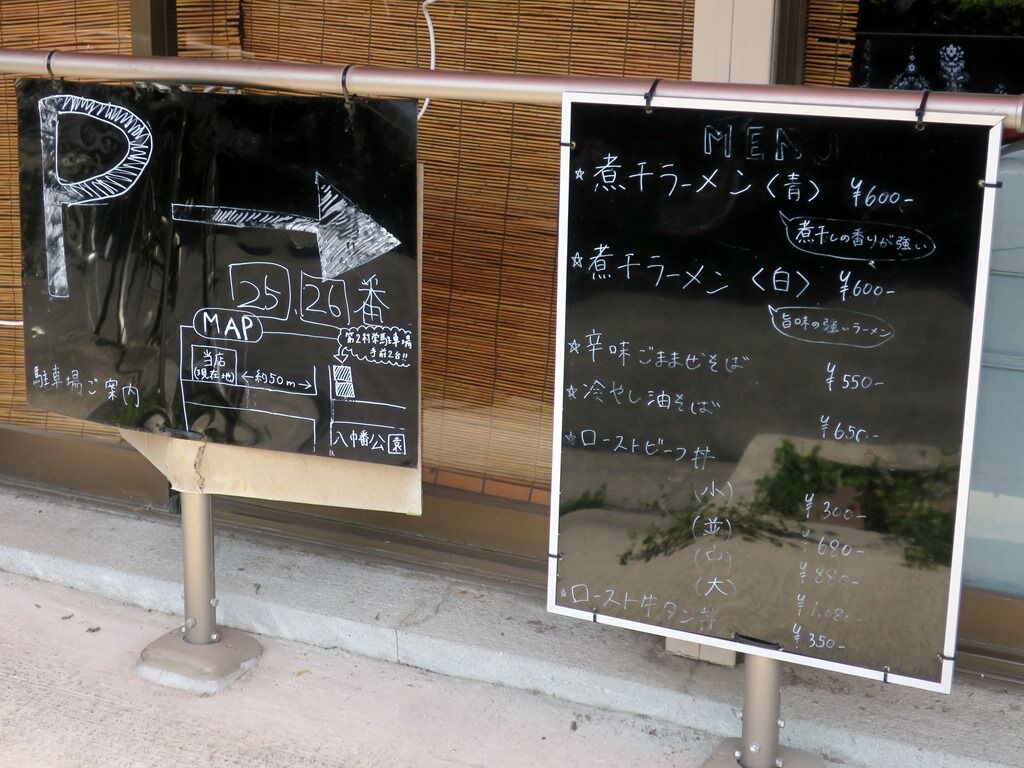 P
25 26 番
MAP
第2村栄駐車場
手前2台!!
当店
(現在地)
←約50m→
駐車場ご案内
八幡公園
MENU
☆煮干ラーメン〈青〉 ¥600-
煮干しの香りが強い
☆煮干ラーメン〈白〉 ¥600-
旨味の強いラーメン
☆辛味ごままぜそば ¥550-
☆冷やし油そば ¥650-
☆ローストビーフ丼
(小) ¥300-
(並) ¥680-
(中) ¥880-
(大) ¥1,080-
☆ロースト牛タン丼 ¥350-